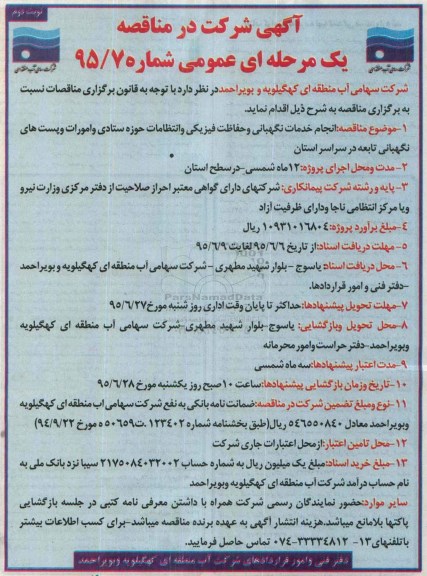 نوبت دوم
آگهی شرکت در مناقصه
یک مرحله ای عمومی شماره ۹۵/۷
شرکت سهامی آب منطقه ای کهگیلویه و بویراحمد در نظر دارد با توجه به قانون برگزاری مناقصات نسبت
به برگزاری مناقصه به شرح ذیل اقدام نماید.
۱-موضوع مناقصه: انجام خدمات نگهبانی وحفاظت فیزیکی وانتظامات حوزه ستادی وامورات وپست های
نگهبانی تابعه در سراسر استان
۲-مدت ومحل اجرای پروژه: ۱۲ماه شمسی-درسطح استان
۳- پایه و رشته شرکت پیمانکاری: شرکتهای دارای گواهی معتبر احراز صلاحیت از دفتر مرکزی وزارت نیرو
ویا مرکز انتظامی ناجا ودارای ظرفیت آزاد
۴-مبلغ برآورد پروژه: ۱۰۹۳۱۰۱۶۸۰۴ ریال
۵- مهلت دریافت اسناد: از تاریخ ۹۵/۶/۶ لغایت ۹۵/۶/۹
۶-محل دریافت اسناد: یاسوج -بلوار شهید مطهری -شرکت سهامی آب منطقه ای کهگیلویه وبویراحمد
-دفتر فنی و امور قراردادها.
۷-مهلت تحویل پیشنهادها: حداکثر تا پایان وقت اداری روز شنبه مورخ ۹۵/۶/۲۷
۸-محل تحویل وبازگشایی: یاسوج-بلوار شهید مطهری-شرکت سهامی آب منطقه ای کهگیلویه
وبویراحمد-دفتر حراست وامور محرمانه
۹-مدت اعتبار پیشنهادها: سه ماه شمسی
۱۰-تاریخ وزمان بازگشایی پیشنهادها: ساعت ۱۰صبح روز یکشنبه مورخ ۹۵/۶/۲۸
۱۱-نوع ومبلغ تضمین شرکت در مناقصه: ضمانت نامه بانکی به نفع شرکت سهامی اب منطقه ای کهگیلویه
وبویراحمد معادل ۵۴۶۵۵۰۸۴۰ ریال(طبق بخشنامه شماره ۱۲۳۴۰۲.ت۵۰۶۵۹ ه مورخ ۹۴/۹/۲۲)
۱۲-محل تامین اعتبار: ازمحل اعتبارات جاری شرکت
۱۳-مبلغ خرید اسناد: مبلغ یک میلیون ریال به شماره حساب ۲۱۷۵۰۸۴۰۳۲۰۰۲ سیبا نزد بانک ملی به
نام حساب درآمد شرکت آب منطقه ای کهگیلویه وبویراحمد
سایر موارد: حضور نمایندگان رسمی شرکت همراه با داشتن معرفی نامه کتبی در جلسه بازگشایی
پاکتها بلامانع میباشد.هزینه انتشار آگهی به عهده برنده مناقصه میباشد-برای کسب اطلاعات بیشتر
با تلفنهای۱۳- ۳۳۳۳۴۸۱۲-۰۷۴ تماس حاصل فرمایید.
دفتر فنی وامور قراردادهای شرکت آب منطقه ای کهگیلویه وبویراحمد